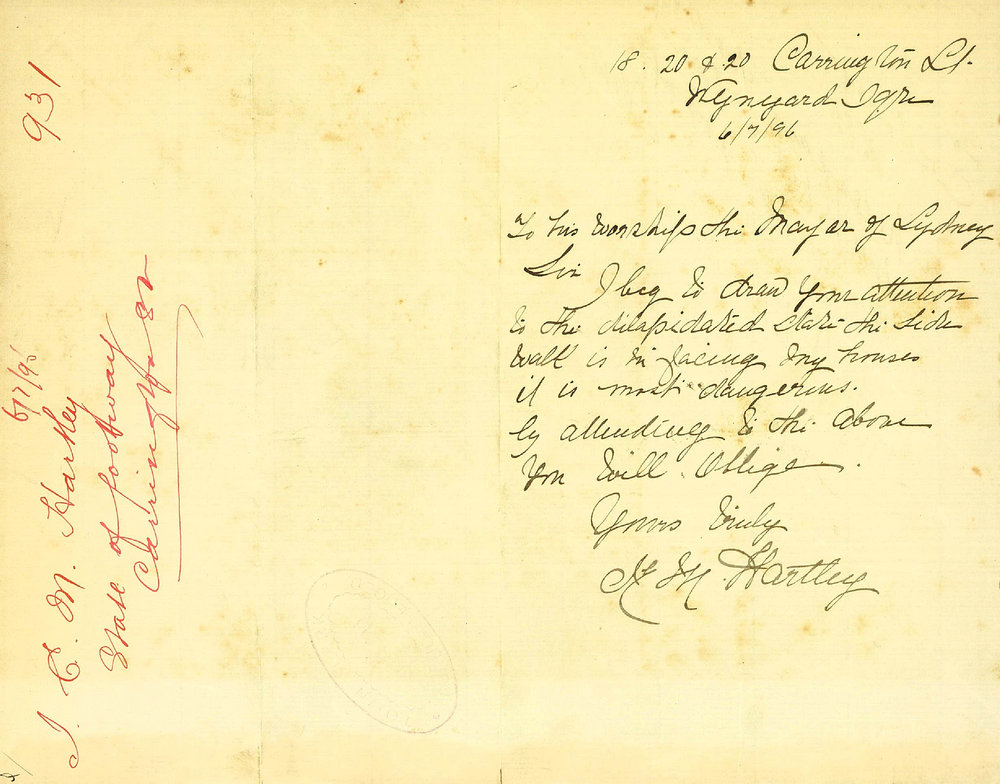 18. 20 & 20 Carrington St.
Wynyard Sqre
6/7/96
To his worship the Mayor of Sydney
Sir
I beg to draw your attention
to the dilapidated state the side
walk is in facing my houses
it is most dangerous.
by attending to the above
you will oblige.
Yours truly
M. Hartley
931
6/7/96
J. C. M. Hartley
State of footway
Carrington St